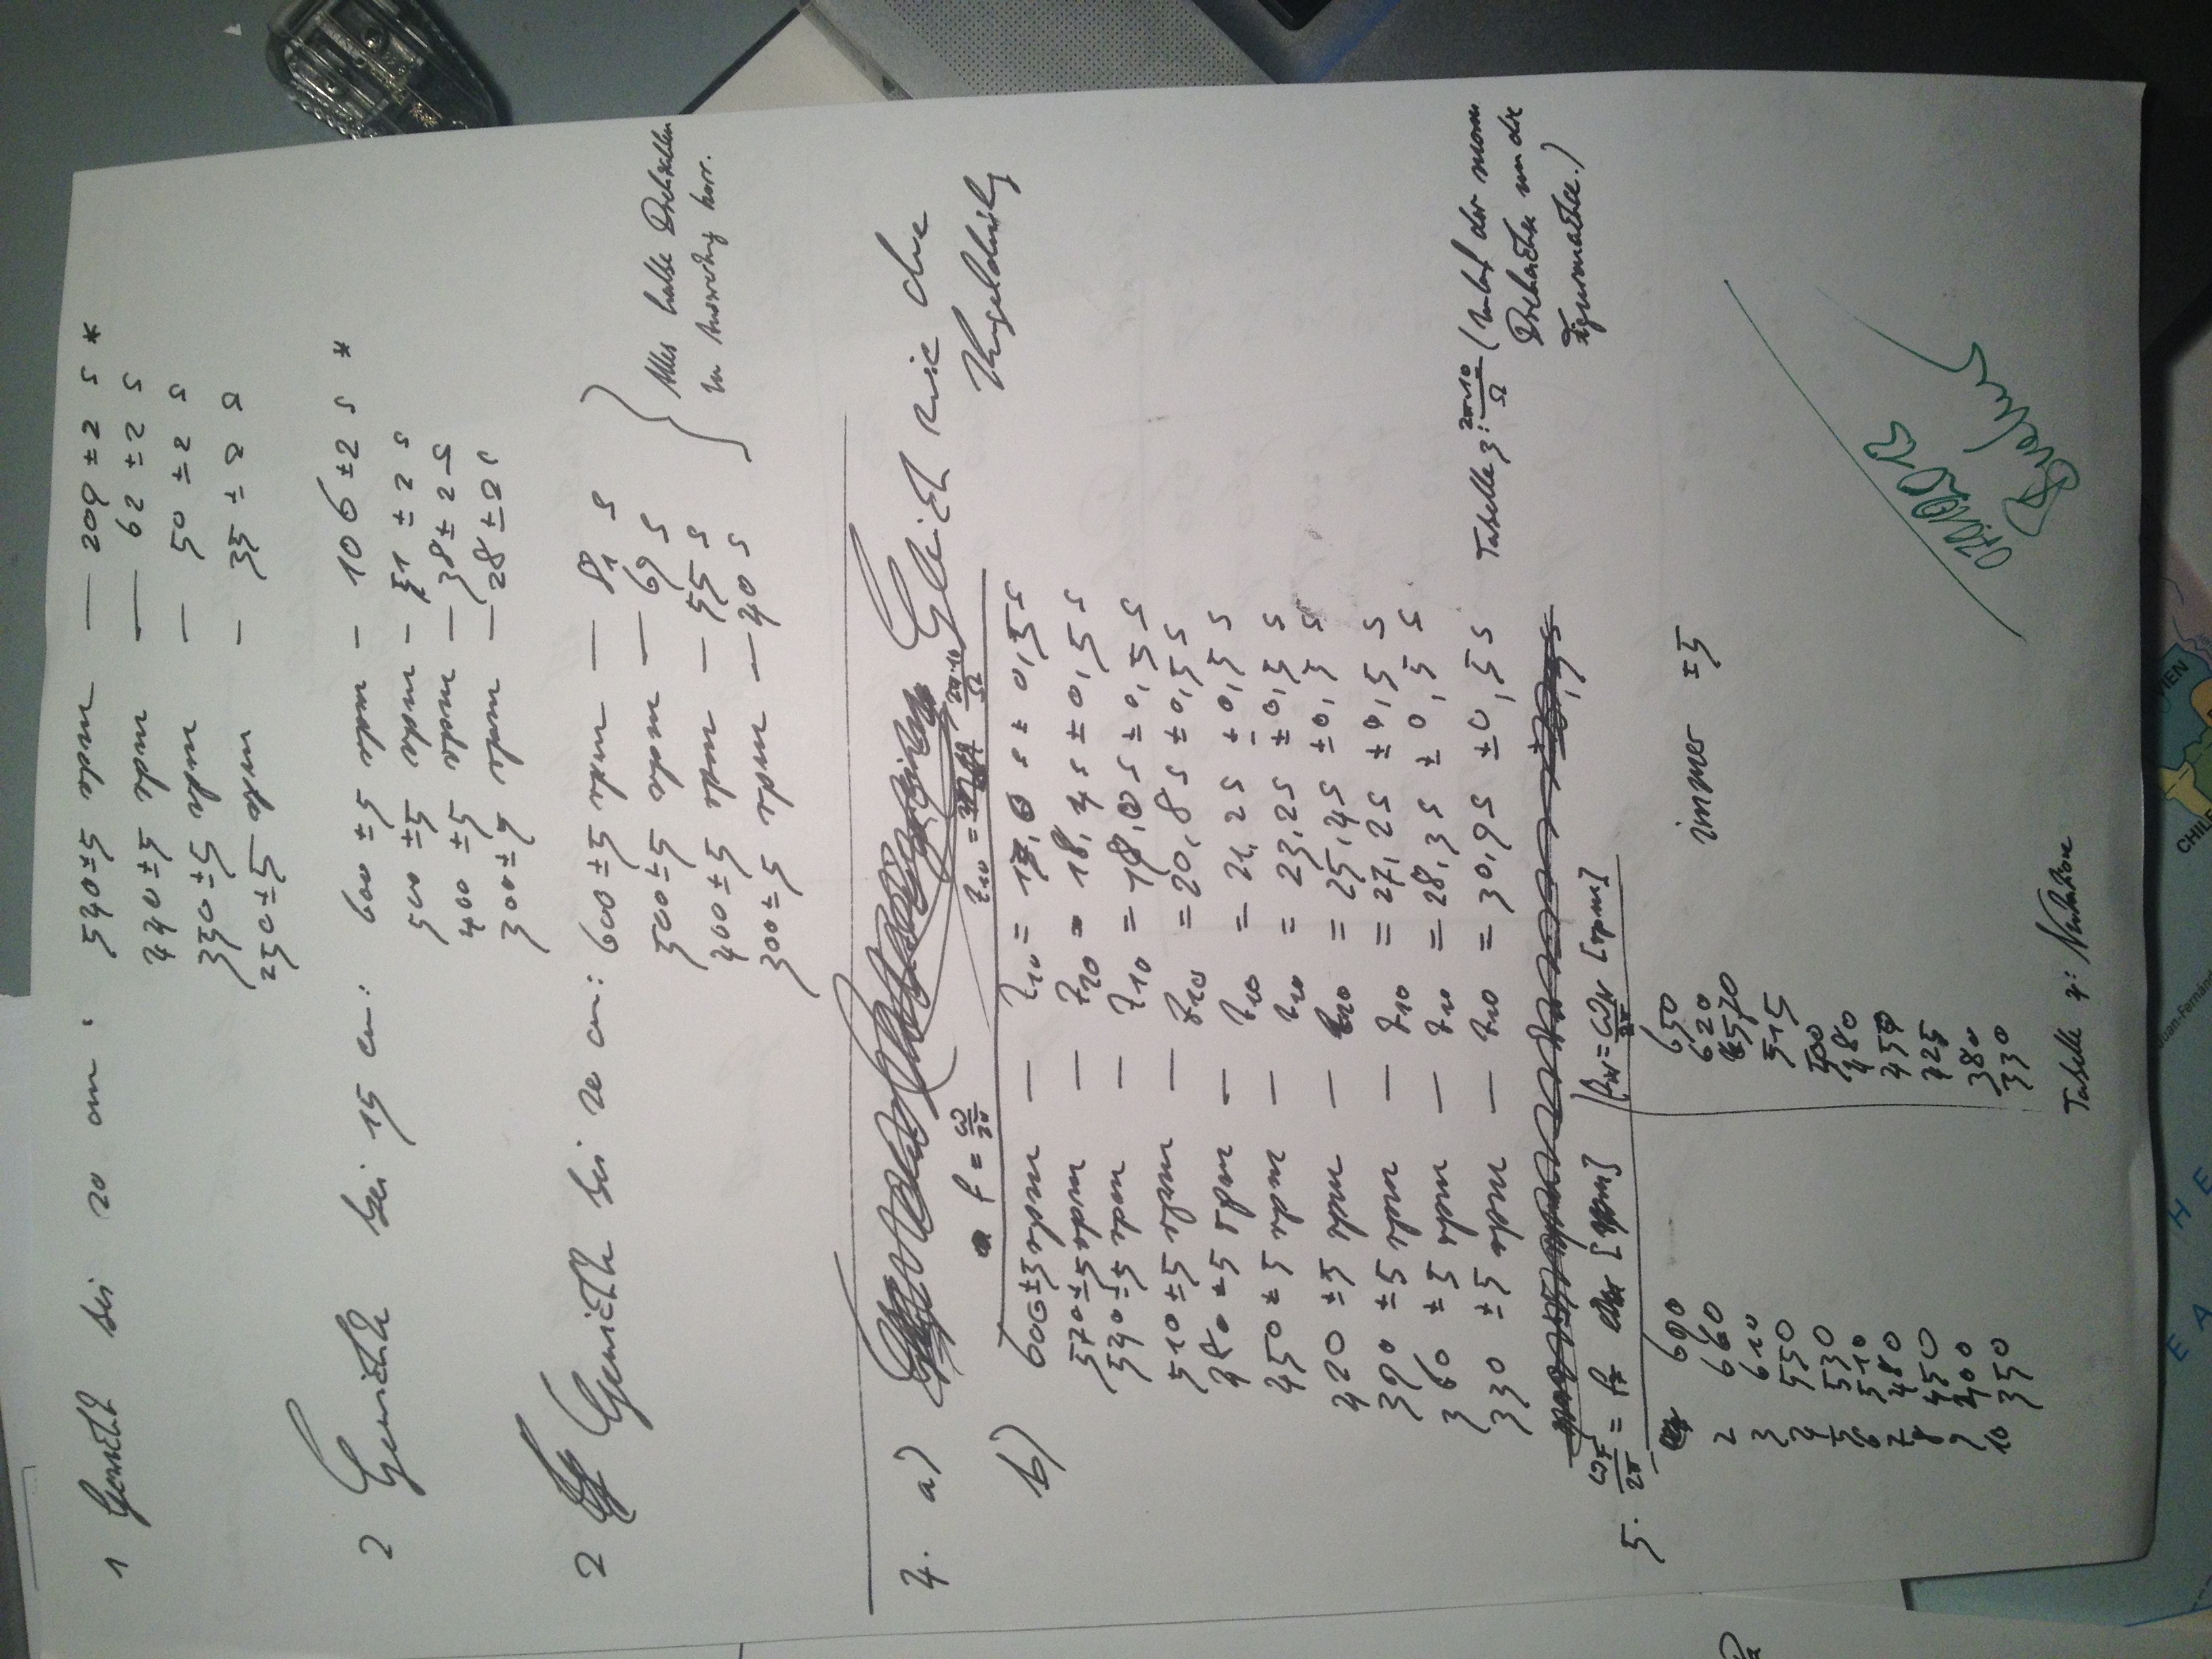 1 Gewicht bei 20 cm : 540±5 rpm — 209 ±2 s *
440±5 rpm — 62 ±2 s
350±5 rpm — 50 ±2 s
250±5 rpm — 35 ±2 s
2 Gewichte bei 15 cm: 600 ±5 rpm — 106 ±2 s *
500 ±5 rpm — 51 ±2 s
400 ±5 rpm — 38 ±2 s
300 ±5 rpm — 28 ±2 s
2 Gewichte bei 20 cm: 600 ±5 rpm — 81 s
500±5 rpm — 69 s
400±5 rpm — 55 s
300±5 rpm — 40 s
Alles halbe Drehzahlen
in Auswertung korr.
4. a) Gleich wie die
b) f = ω/2π t10 = 2π·10/Ω
600±5 rpm — t10 = 17,0 s ± 0,5 s
570±5 rpm — t10 = 18,4 s ± 0,5 s
540±5 rpm — t10 = 18,0 s ± 0,5 s
510±5 rpm — t10 = 20,8 s ±0,5 s
480 ±5 rpm — t10 = 21,2 s ±0,5 s
450 ±5 rpm — t10 = 23,2 s ±0,5 s
420 ±5 rpm — t10 = 25,4 s ±0,5 s
390 ±5 rpm — t10 = 27,2 s ±0,5 s
360 ±5 rpm — t10 = 28,3 s ±0,5 s
330 ±5 rpm — t10 = 30,9 s ±0,5 s
Tabelle 3: 2π·10/Ω (Umlauf der mom
Drehachse um die
Figurenachse.)
5. ωF/2π = fF [rpm] | fN = ωN/2π [rpm]
690 650
2 660 620
3 610 570
4 550 515
5 530 500
6 510 480
7 480 450
8 450 425
9 400 380
10 350 330
immer ±5
Tabelle 4: Nutation